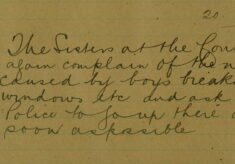 20
The Sisters at the Con
again complain of the n
caused by boys break
windows etc and ask
Police to go up there a
soon as possible